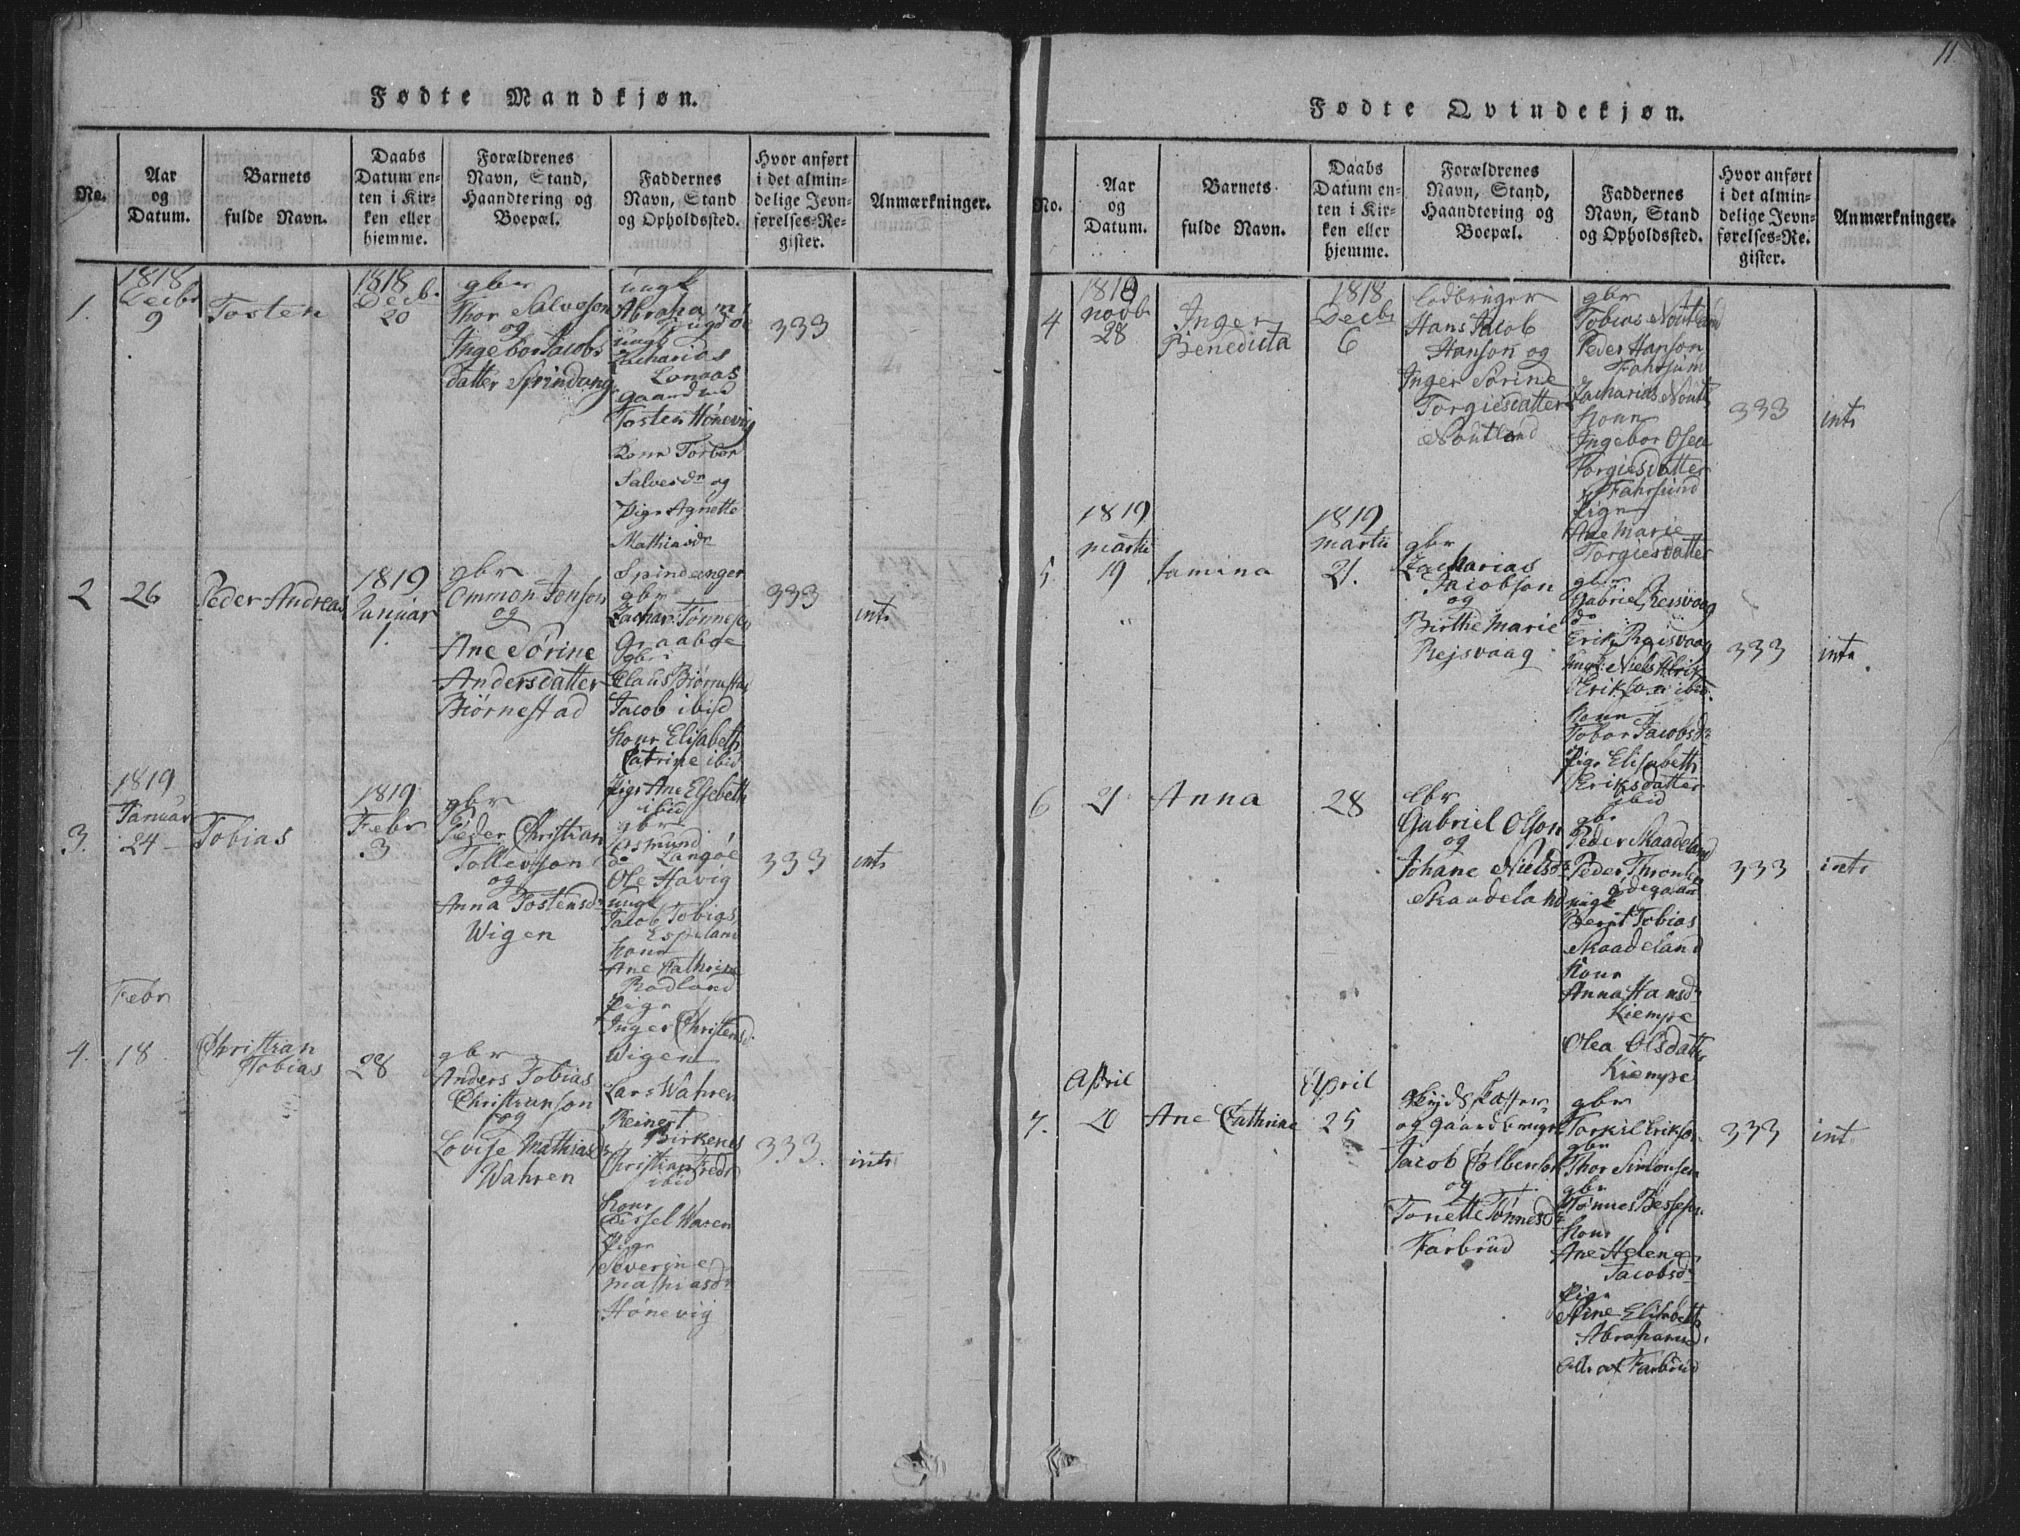 11
Fødte Mandkjøn.
No.
Aar
og
Datum.
Barnets
fulde Navn.
Daabs
Datum en-
ten i Kir-
ken eller
hjemme.
Forældrenes
Navn, Stand,
Haandtering og
Boepæl.
Faddernes
Navn, Stand
og Opholdssted.
Hvor anført
i det almin-
delige Jevn-
førelses-Re-
gister.
Anmærkninger.
1.
1818
Decbr
9
Tosten
1818
Decb.
20
gbr
Thor Salveson
og
Ingebor Jacobs
datter Spindang
ungk
Abraham
ungk
Zacharias
Lonaas
gaardmd
Tosten Hønevig
kone Torbor
Salvesdr og
Pige Agnette
Mathiasdr
Spindanger
333
2
26
Peder Andreas
1819
Januar
1.
gbr
Ommon Jonson
og
Ane Sørine
Andersdatter
Biørnestad
gbr
Zachari Tønnesen
Graaboe
gbr
Claus Biørnestad
Jacob ibid
Kone Elisabeth
Catrine ibid
Pige Ane Elsebeth
ibid
333
intr
3.
1819
Januar
24
Tobias
1819
Febr
3
gbr
Peder Christian
Tollevson
og
Anna Tostensdr
Wigen
gbr
Osmund
do Langøe
Ole Havig
ungk
Jacob Tobias
Espeland
Kone
Ane Cathrine
Rodland
Pige
Inger Christensd.
Wigen
333
intr
4.
Febr
18
Christian
Tobias
28
gbr
Anders Tobias
Christianson
og
Lovise Mathiasdr
Wahren
Lars Wahren
Reinert
Birkenes
Christian Fredr
ibid
Kone
Sissel Waren
Pige
Severine
Mathiasdr
Hønevig
333.
intr
Fødte Qvindekjøn.
No.
Aar
og
Datum.
Barnets
fulde Navn.
Daabs
Datum en-
ten i Kir-
ken eller
hjemme.
Forældrenes
Navn, Stand,
Haandtering og
Boepæl.
Faddernes
Navn, Stand
og Opholdssted.
Hvor anført
i det almin-
delige Jevn-
førelses-Re-
gister.
Anmærkninger.
4
1818
Novbr
28
Inger
Benedicta
1818
Decbr
6
Lodbruger
Hans Jacob
Hanson og
Inger Sørine
Torgiesdatter
Noutland
gbr
Tobias Noutland
Peder Hanson
Fahrsund
Zacharias Nout
Kone
Ingebor Olea
Torgiesdatter
Fahrsund
Pige
Ane Marie
Torgiesdatter
333
intr
5.
1819
Martii
19
Jamina
1819
Martii
21.
gbr
Zacharias
Jacobson
og
Birthe Marie
Rejsvaag
gbr
Gabriel Reisvaag
do
Erik Reisvaag
ungk Niels
Erikson ibid
Kone
Tobor Jacobsdr
Pige Elisabeth
Eriksdatter
ibid
333
intr
6
21
Anna
28
gbr
Gabriel Olson
og
Johane Nielsdr
Skaadeland
gbr
Peder Skaadeland
Peder Thronsen
ødegaard
ungk
Bernt Tobias
Skaadeland
Kone
Anna Hansdr
Kiempe
Olea Olsdatter
Kiempe
333
intr
7.
April
20
Ane Cathrine
April
25
Skydskaffer
og gaardbruger
Jacob Colbenson
og
Tonette Tønnesdr
Farbrud
gbr
Torkil Erikson
gbr
Thor Simonsen
gbr
Tønnes Bessesen
Kone
Ane Helene
Jacobsdr
Pige
Stine Elisabeth
Abrahamsd.
alle af Farbrud
333
intr